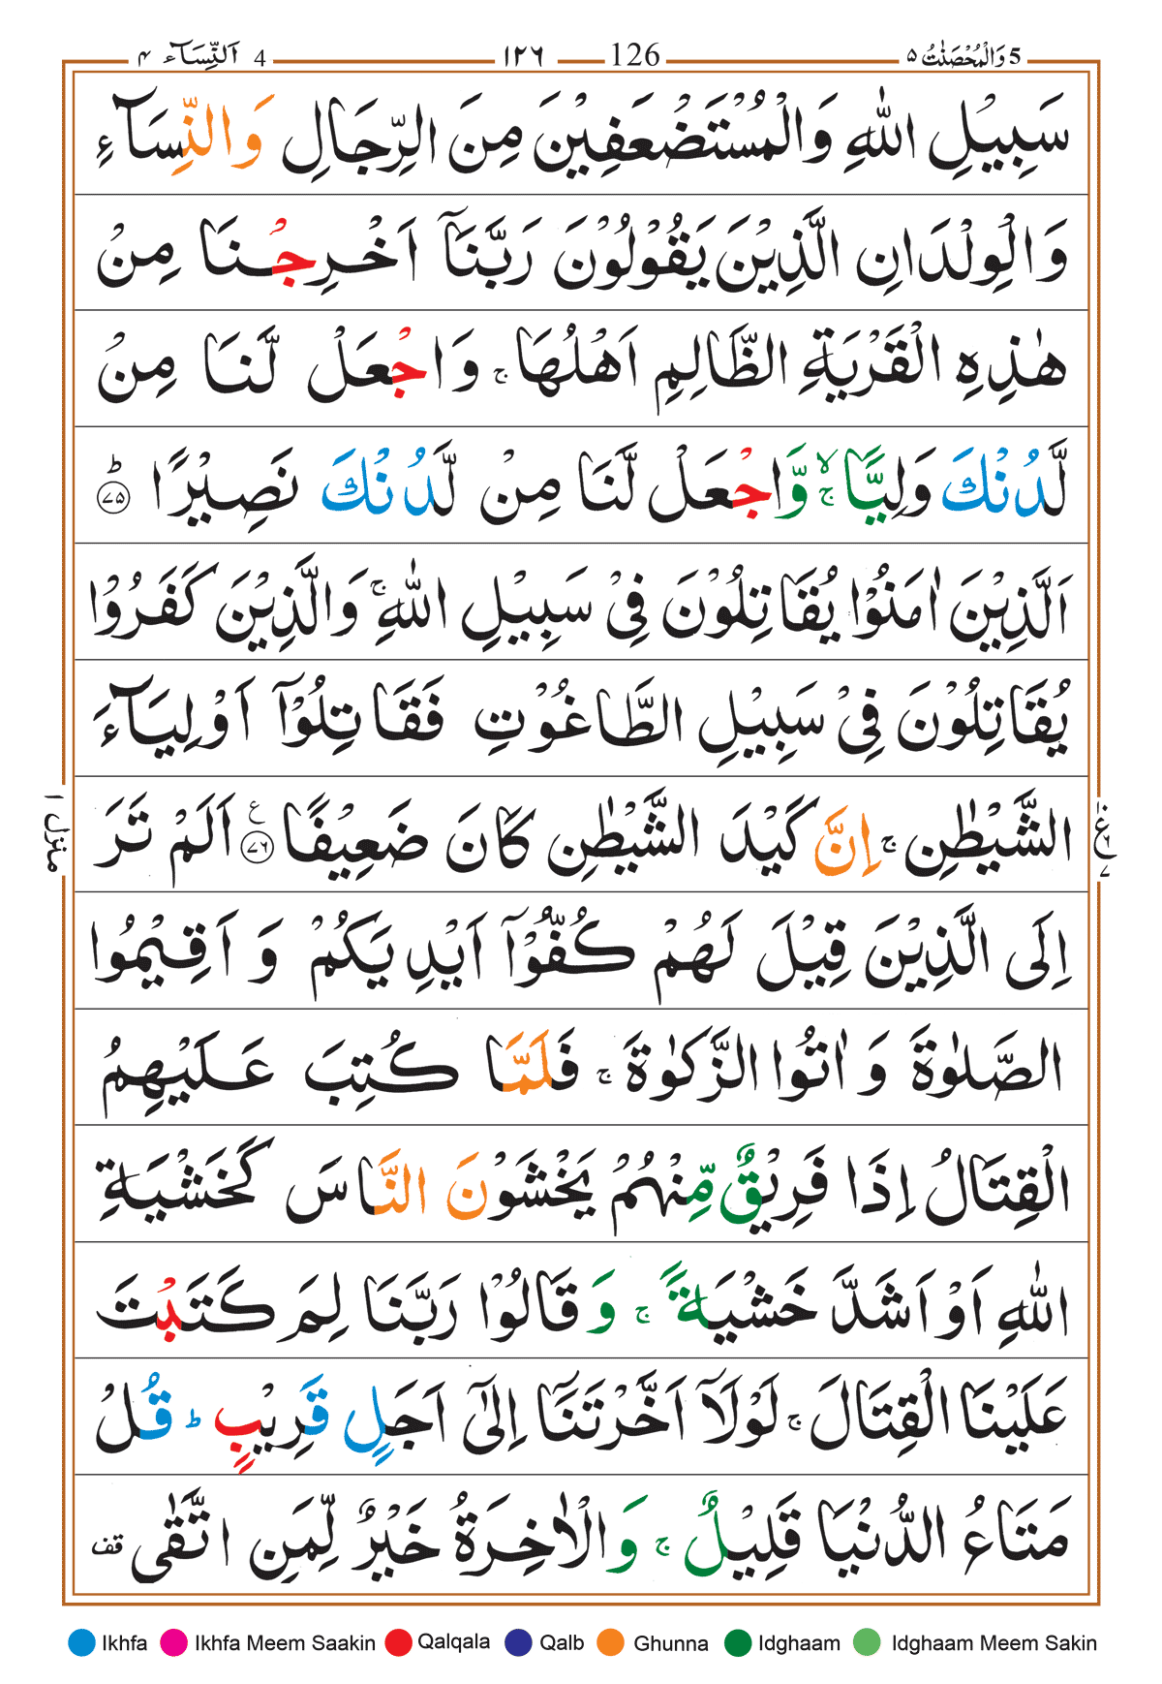 5 وَالْمُحْصَنٰتُ ٥ 126 ١٢٦ 4 اَلنِّسَآء ٤
سَبِيْلِ اللّٰهِ وَالْمُسْتَضْعَفِيْنَ مِنَ الرِّجَالِ وَالنِّسَآءِ
وَالْوِلْدَانِ الَّذِيْنَ يَقُوْلُوْنَ رَبَّنَآ اَخْرِجْنَا مِنْ
هٰذِهِ الْقَرْيَةِ الظَّالِمِ اَهْلُهَا ۚ وَاجْعَلْ لَّنَا مِنْ
لَّدُنْكَ وَلِيًّا ۙۚ وَّاجْعَلْ لَّنَا مِنْ لَّدُنْكَ نَصِيْرًا ؕ ٧٥
اَلَّذِيْنَ اٰمَنُوْا يُقَاتِلُوْنَ فِىْ سَبِيْلِ اللّٰهِ ۚ وَالَّذِيْنَ كَفَرُوْا
يُقَاتِلُوْنَ فِىْ سَبِيْلِ الطَّاغُوْتِ فَقَاتِلُوْٓا اَوْلِيَآءَ
الشَّيْطٰنِ ۚ اِنَّ كَيْدَ الشَّيْطٰنِ كَانَ ضَعِيْفًا ٧٦ ع اَلَمْ تَرَ
منزل ١
اِلَى الَّذِيْنَ قِيْلَ لَهُمْ كُفُّوْٓا اَيْدِيَكُمْ وَ اَقِيْمُوا
الصَّلٰوةَ وَ اٰتُوا الزَّكٰوةَ ۚ فَلَمَّا كُتِبَ عَلَيْهِمُ
الْقِتَالُ اِذَا فَرِيْقٌ مِّنْهُمْ يَخْشَوْنَ النَّاسَ كَخَشْيَةِ
اللّٰهِ اَوْ اَشَدَّ خَشْيَةً ۚ وَ قَالُوْا رَبَّنَا لِمَ كَتَبْتَ
عَلَيْنَا الْقِتَالَ ۚ لَوْلَآ اَخَّرْتَنَآ اِلٰٓى اَجَلٍ قَرِيْبٍ ؕ قُلْ
مَتَاعُ الدُّنْيَا قَلِيْلٌ ۚ وَالْاٰخِرَةُ خَيْرٌ لِّمَنِ اتَّقٰى قف
Ikhfa Ikhfa Meem Saakin Qalqala Qalb Ghunna Idghaam Idghaam Meem Sakin